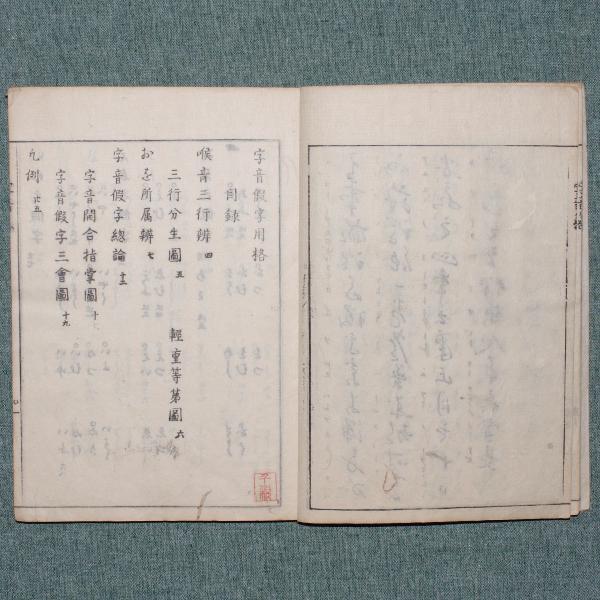 字音假字用格
目録
喉音三行辨 四
三行分生圖 五 輕重等第圖 六
おを所属辨 七
字音假字総論 十三
字音開合指掌圖 十
字音假字三會圖 十九
凡例 廿五